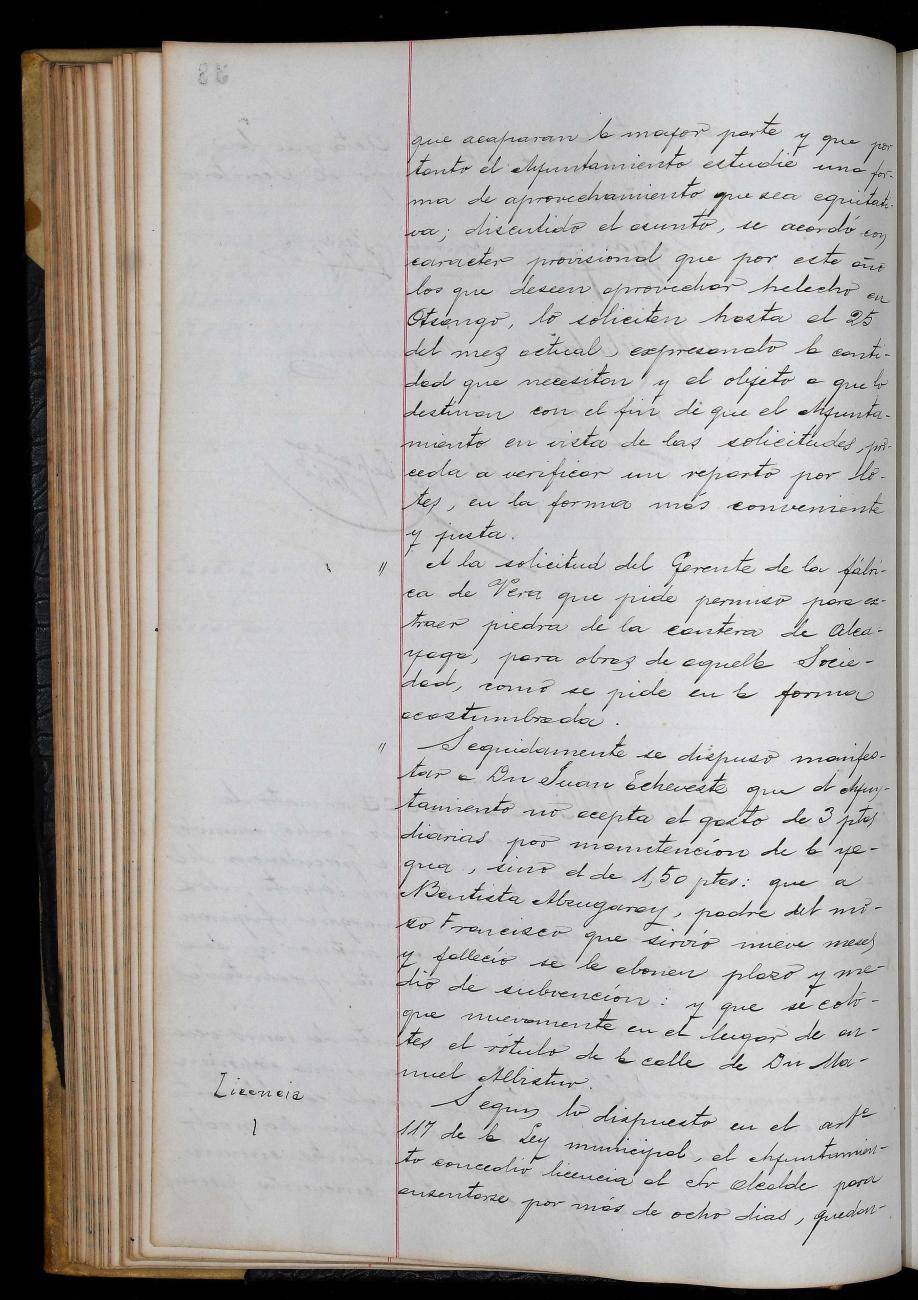 que acaparan la mayor parte y que por
tanto el Ayuntamiento estudie una for-
ma de aprovechamiento que sea equitati-
va; discutido el asunto, se acordó con
caracter provisional que por este año
los que deseen aprovechar helecho en
Otsango, lo soliciten hasta el 25
del mes actual, expresando la canti-
dad que necesitan y el objeto a que lo
destinan con el fin de que el Ayunta-
miento en vista de las solicitudes, pro-
ceda a verificar un reparto por lo-
tes, en la forma más conveniente
y justa.
" A la solicitud del Gerente de la fábri-
ca de Vera que pide permiso para ex-
traer piedra de la cantera de Alca-
yaga, para obras de aquella Socie-
dad, como se pide en la forma
acostumbrada.
" Seguidamente se dispuso manifes-
tar a Dn Juan Echeveste que el Ayun-
tamiento no acepta el gasto de 3 ptas
diarias por manutención de la ye-
gua, sino el de 1,50 ptas: que a
Bautista Abeugaray, padre del mo-
zo Francisco que sirvió nueve meses
y falleció se le abonen plazo y me-
dio de subvención: y que se colo-
que nuevamente en el lugar de an-
tes el rótulo de la calle de Dn Ma-
nuel Albistur.
Licencia
Segun lo dispuesto en el artº
117 de la Ley municipal, el Ayuntamien-
to concedió licencia al Sr Alcalde para
ausentarse por más de ocho dias, quedan-